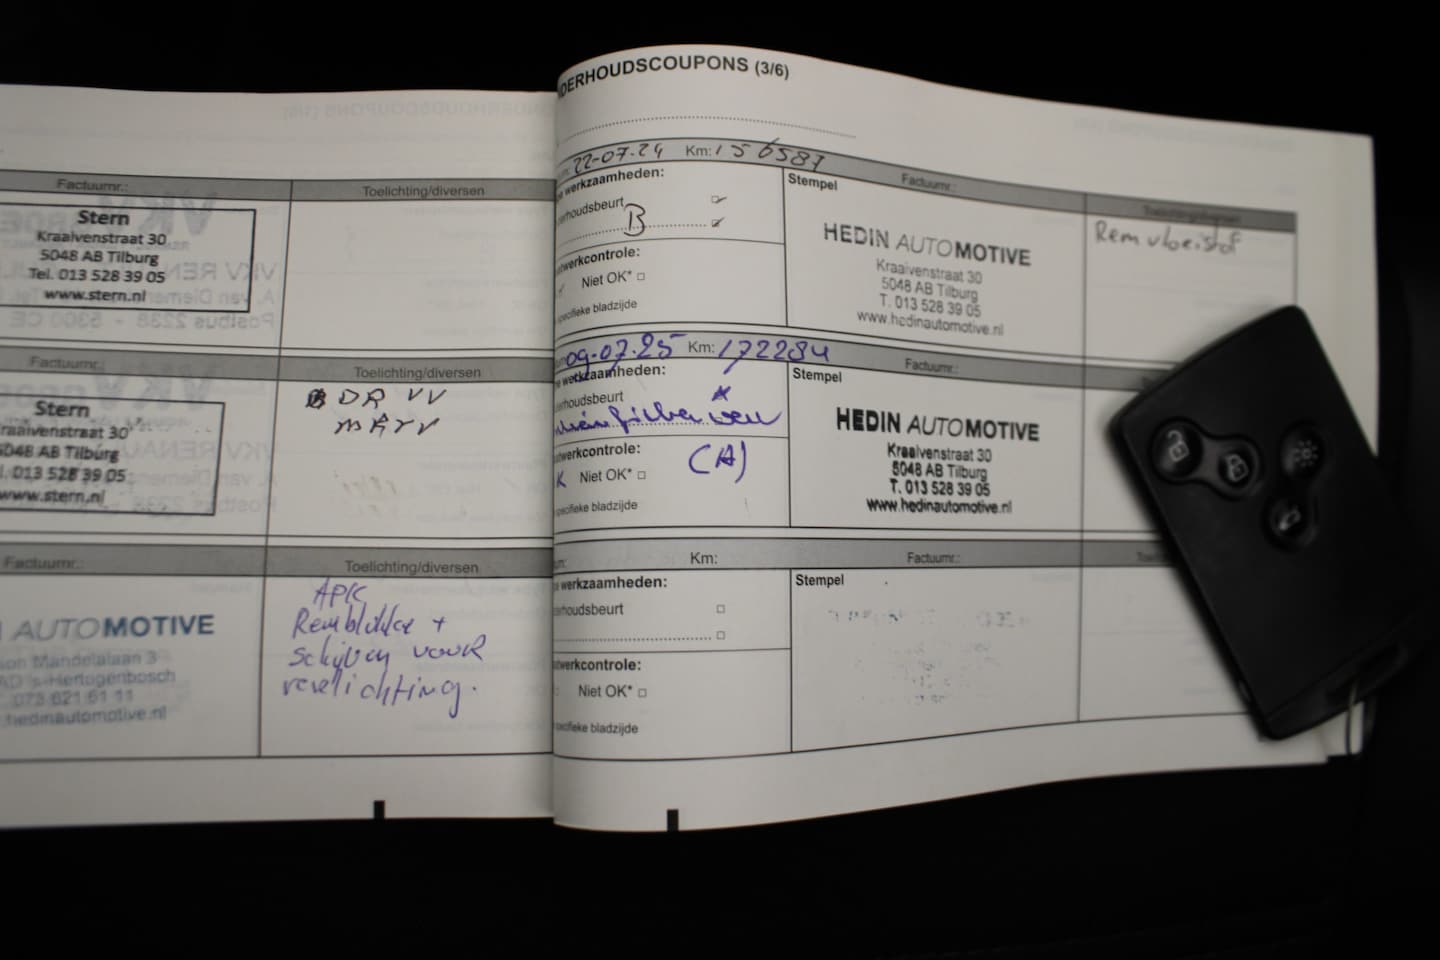 Factuurnr.:
Toelichting/diversen
Stern
Kraaivenstraat 30
5048 AB Tilburg
Tel. 013 528 39 05
www.stern.nl
Factuurnr.:
Toelichting/diversen
Stern
Kraaivenstraat 30
5048 AB Tilburg
l. 013 528 39 05
www.stern.nl
Factuurnr.:
Toelichting/diversen
AUTOMOTIVE
son Mandelalaan 3
AD 's-Hertogenbosch
073 621 61 11
hedinautomotive.nl
APK
Remblokke +
Schijven voor
verlichting.
NDERHOUDSCOUPONS (3/6)
22-07-24 Km: 156587
Factuurnr.:
e werkzaamheden:
derhoudsbeurt
B
twerkcontrole:
Niet OK*
specifieke bladzijde
Stempel
HEDIN AUTOMOTIVE
Kraaivenstraat 30
5048 AB Tilburg
T. 013 528 39 05
www.hedinautomotive.nl
Remvloeistof
09-07-25 Km: 172284
Factuurnr.:
e werkzaamheden:
derhoudsbeurt
(A)
twerkcontrole:
K Niet OK*
specifieke bladzijde
Stempel
HEDIN AUTOMOTIVE
Kraaivenstraat 30
5048 AB Tilburg
T. 013 528 39 05
www.hedinautomotive.nl
Km:
Factuurnr.:
e werkzaamheden:
derhoudsbeurt
twerkcontrole:
Niet OK*
specifieke bladzijde
Stempel